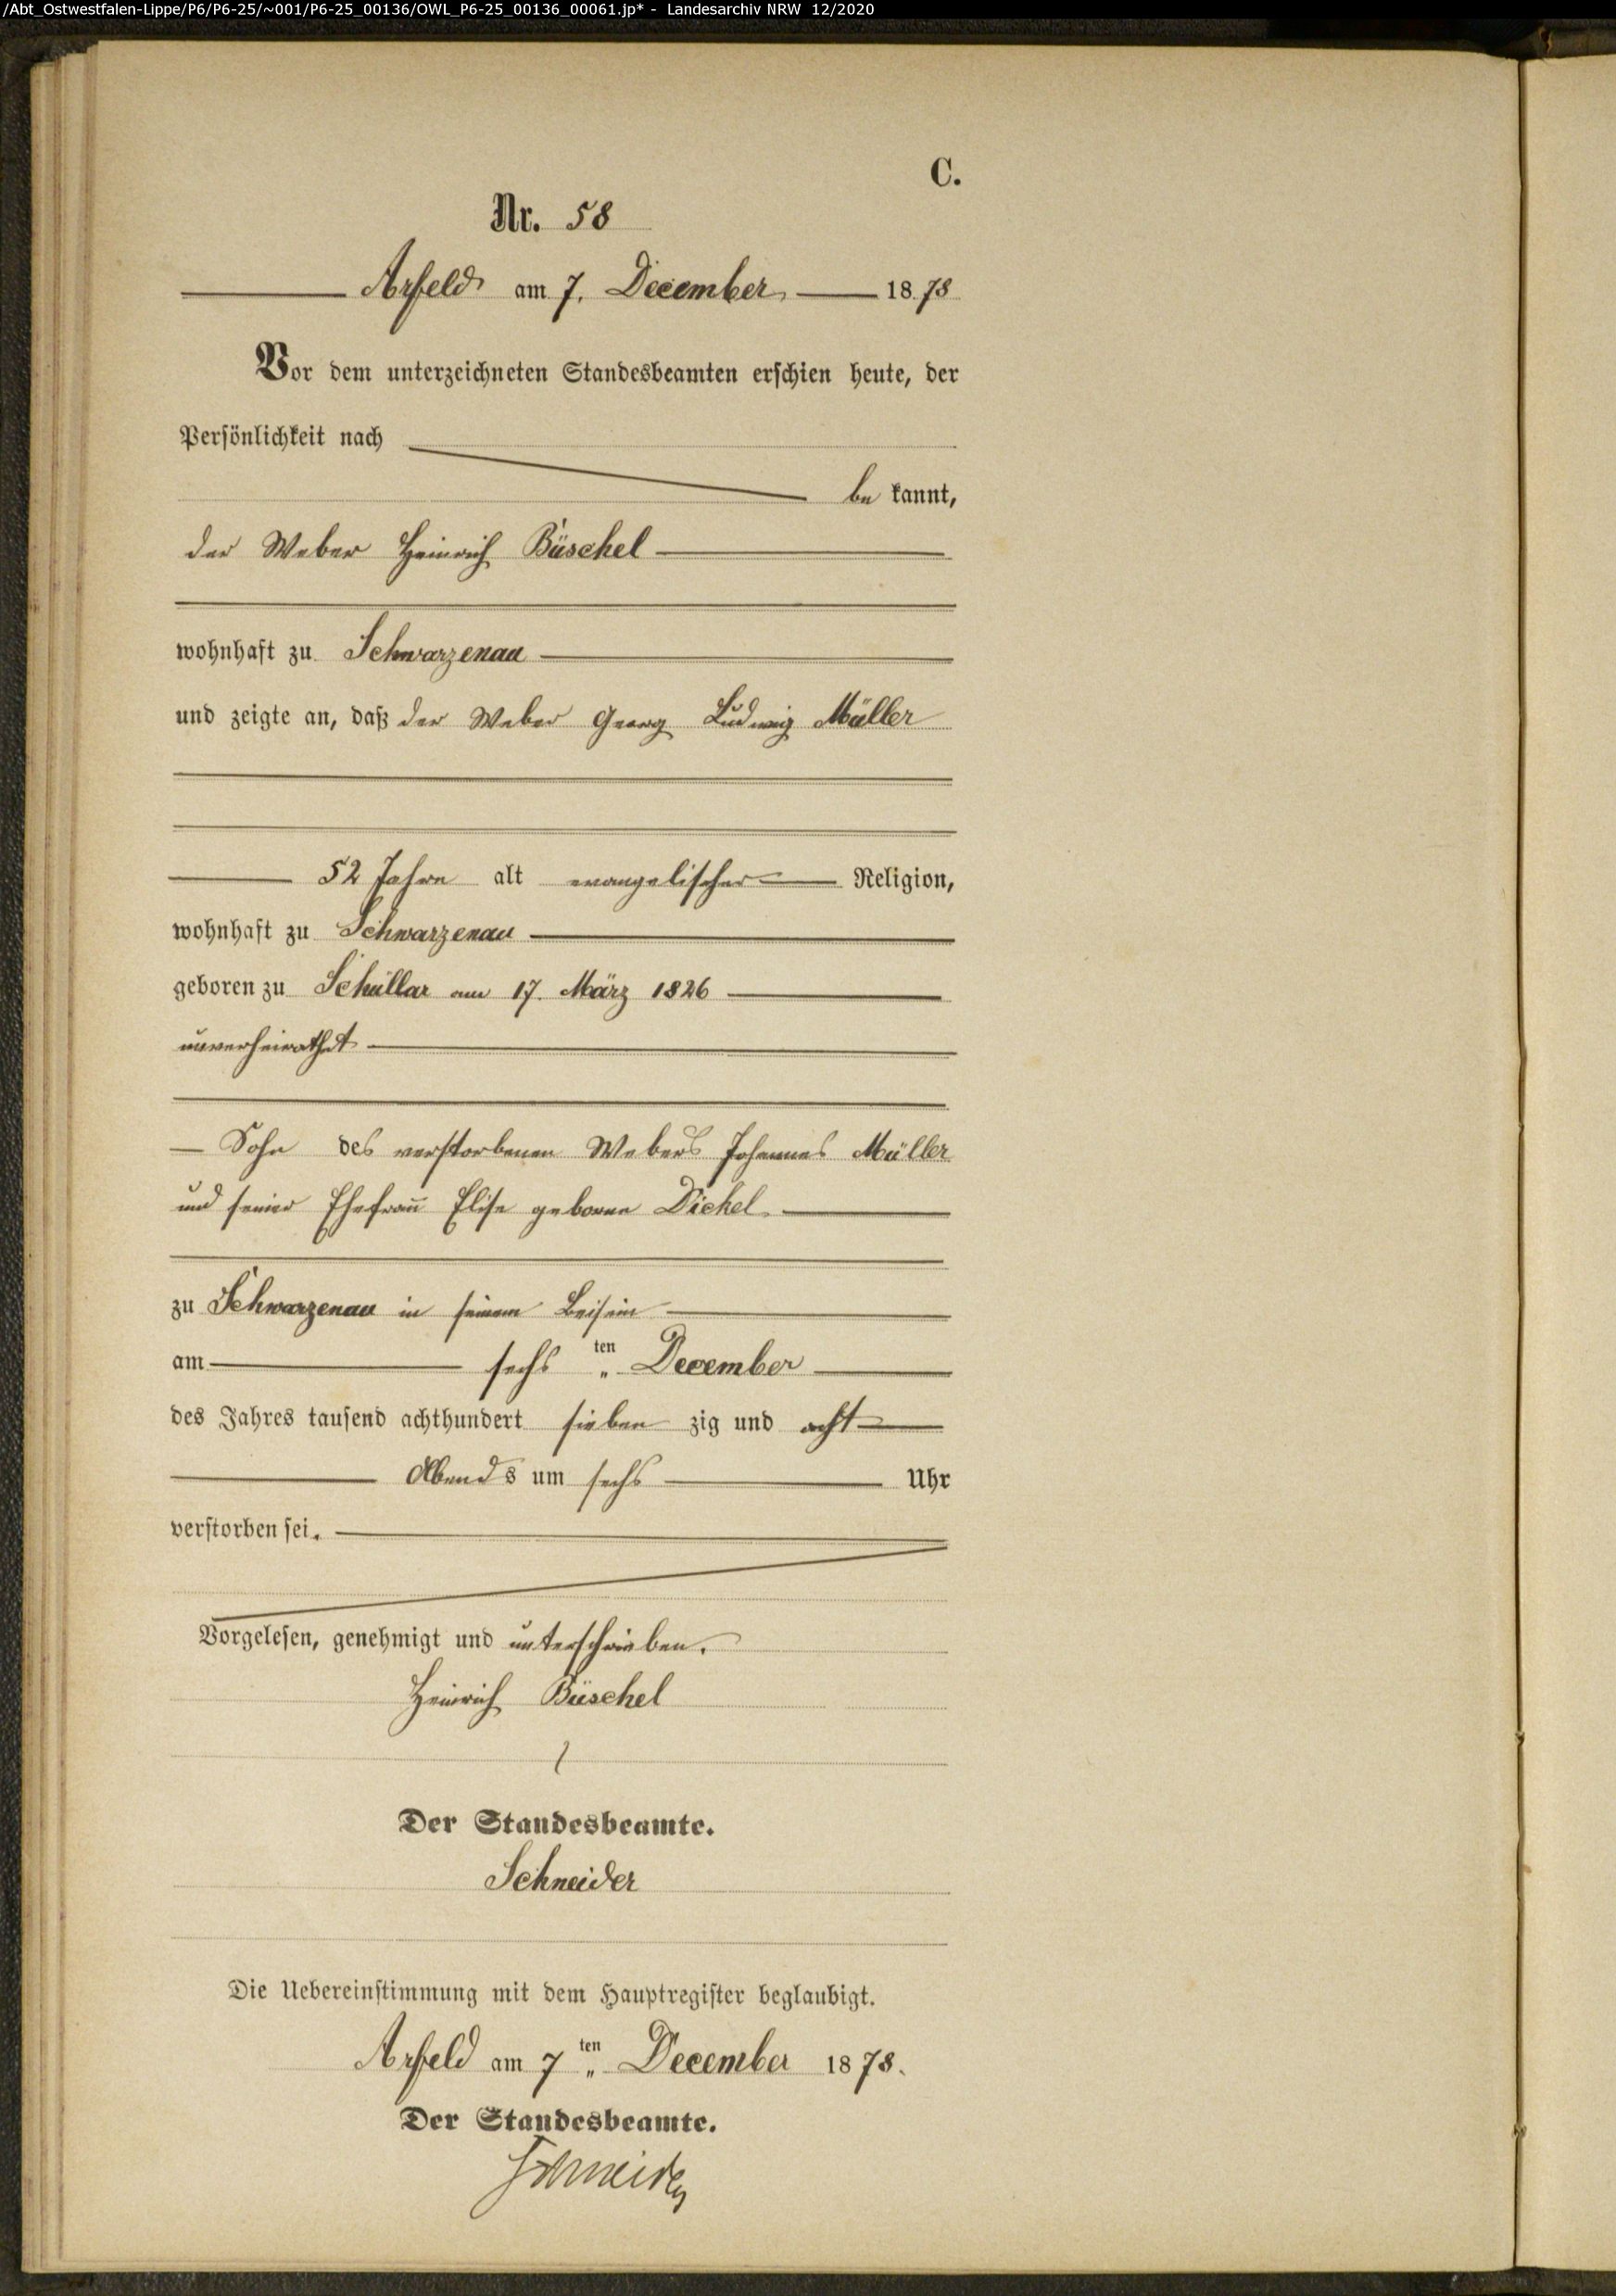 /Abt_Ostwestfalen-Lippe/P6/P6-25/~001/P6-25_00136/OWL_P6-25_00136_00061.jp* - Landesarchiv NRW 12/2020
C.
Nr. 58
Arfeld am 7. December 1878
Vor dem unterzeichneten Standesbeamten erschien heute, der
Persönlichkeit nach
be kannt,
der Weber Heinrich Büschel
wohnhaft zu Schwarzenau
und zeigte an, daß der Weber Georg Ludwig Müller
52 Jahre alt evangelischer Religion,
wohnhaft zu Schwarzenau
geboren zu Schüllar am 17. März 1826
unverheirathet
Sohn des verstorbenen Webers Johannes Müller
und seiner Ehefrau Elise geborne Dickel
zu Schwarzenau in seinem Beisein
am sechs ten December
des Jahres tausend achthundert sieben zig und acht
Abends um sechs Uhr
verstorben sei.
Vorgelesen, genehmigt und unterschrieben.
Heinrich Büschel
Der Standesbeamte.
Schneider
Die Uebereinstimmung mit dem Hauptregister beglaubigt.
Arfeld am 7 ten December 1878.
Der Standesbeamte.
Schneider